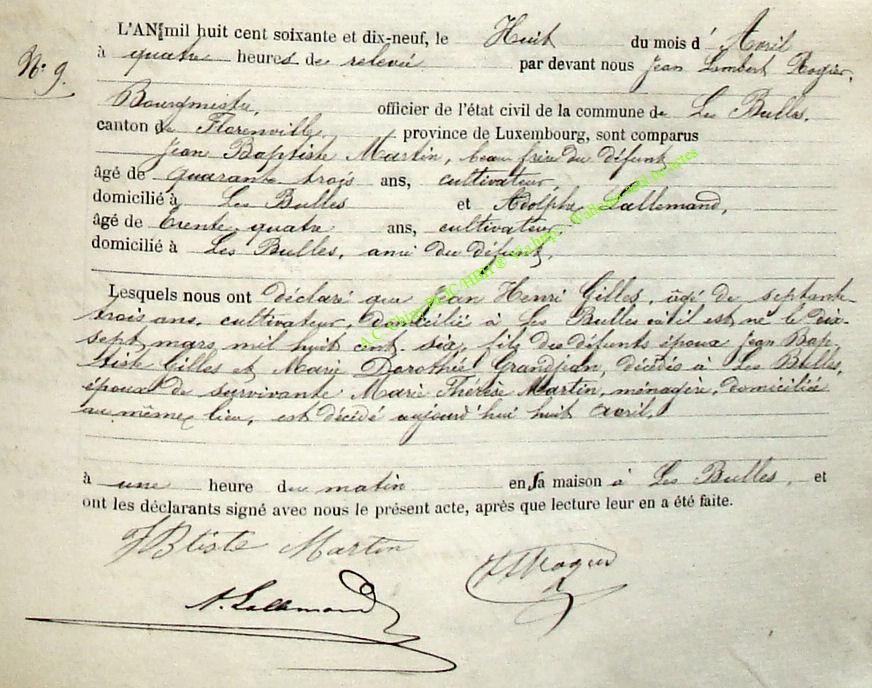 L'AN mil huit cent soixante et dix-neuf, le Huit du mois d' Avril
à quatre heures de relevée par devant nous Jean Lambert Rogier,
N° 9.
Bourgmestre, officier de l'état civil de la commune de Les Bulles,
canton de Florenville, province de Luxembourg, sont comparus
Jean Baptiste Martin, beau frère du défunt
âgé de quarante trois ans, cultivateur,
domicilié à Les Bulles et Adolphe Lallemand,
âgé de trente quatre ans, cultivateur
domicilié à Les Bulles, ami du défunt,
Lesquels nous ont déclaré que Jean Henri Gilles, âgé de septante
trois ans, cultivateur, domicilié à Les Bulles où il est né le dix-
sept mars mil huit cent six, fils des défunts époux Jean Bap-
tiste Gilles et Marie Dorothée Grandjean, décédés à Les Bulles,
époux de survivante Marie Thérèse Martin, ménagère, domiciliée
au même lieu, est décédé aujourd'hui huit avril,
à une heure du matin en sa maison à Les Bulles, et
ont les déclarants signé avec nous le présent acte, après que lecture leur en a été faite.
JBtiste Martin
A. Lallemand